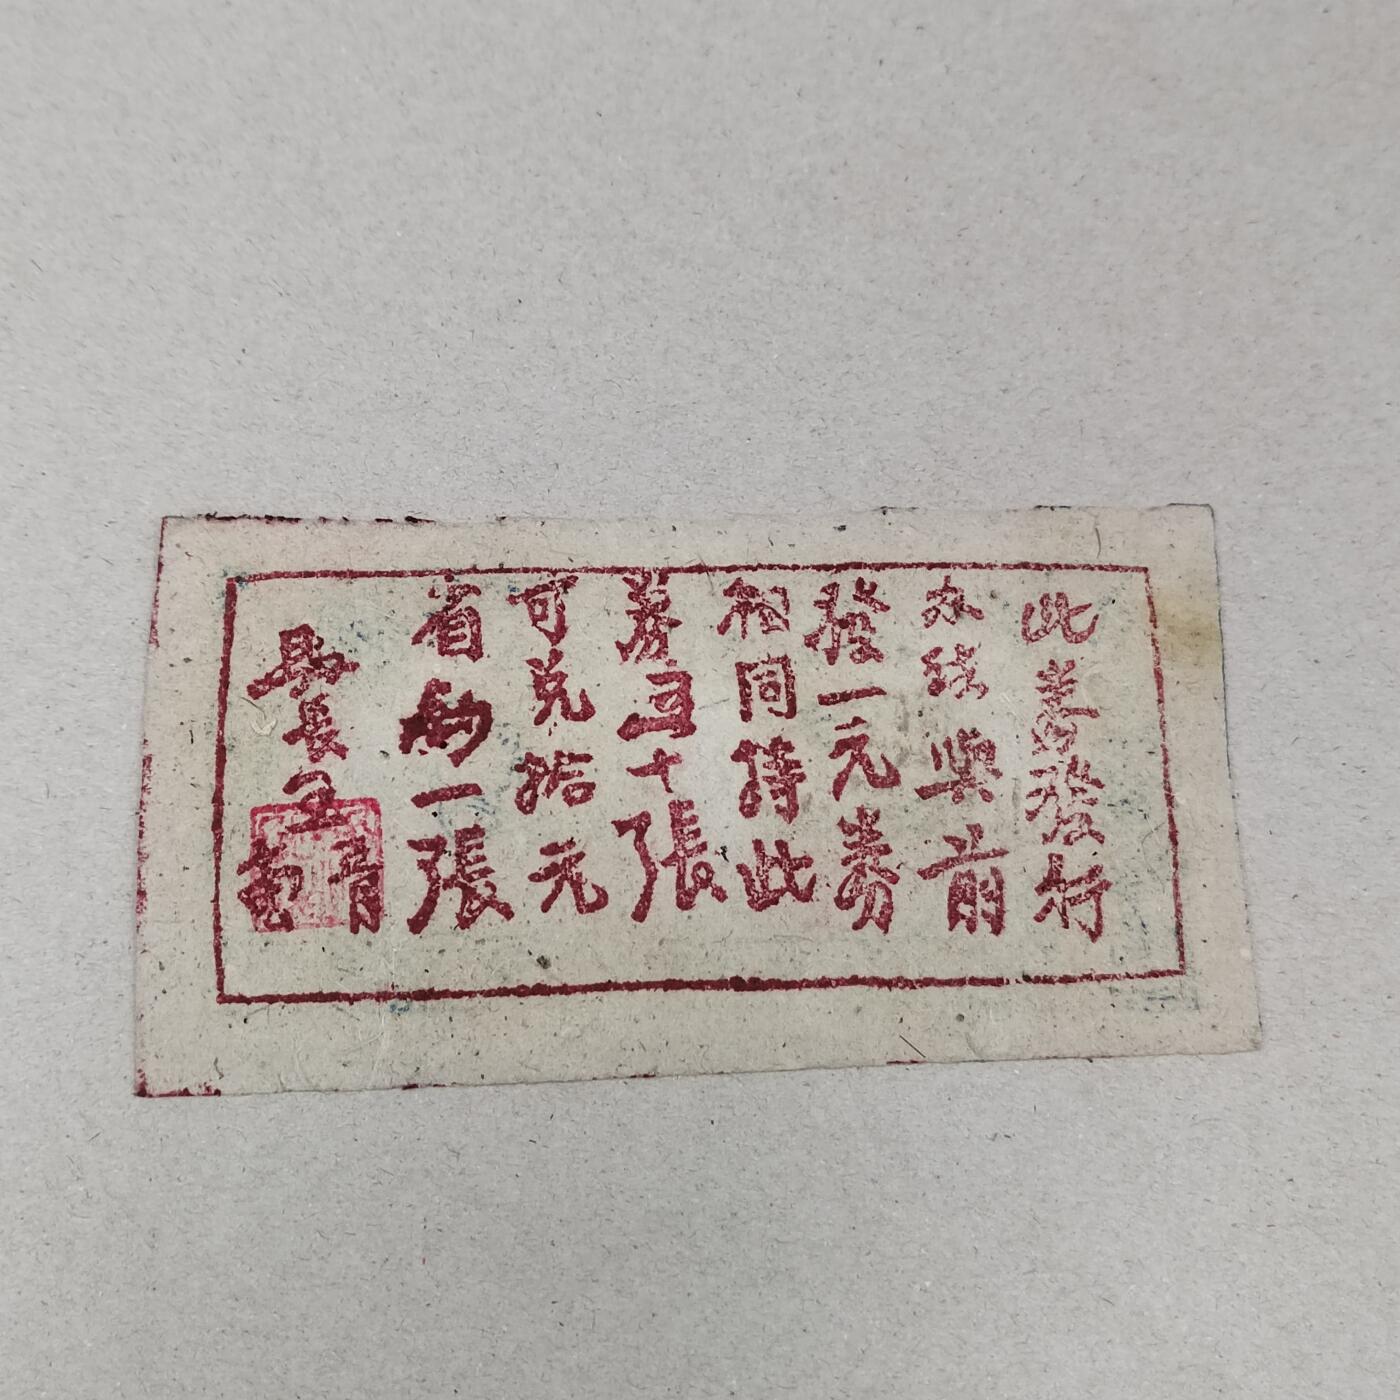 此券發行
办法與前
發一元券
相同持此
券五十張
可兑拾元
省鈔一張
縣長王